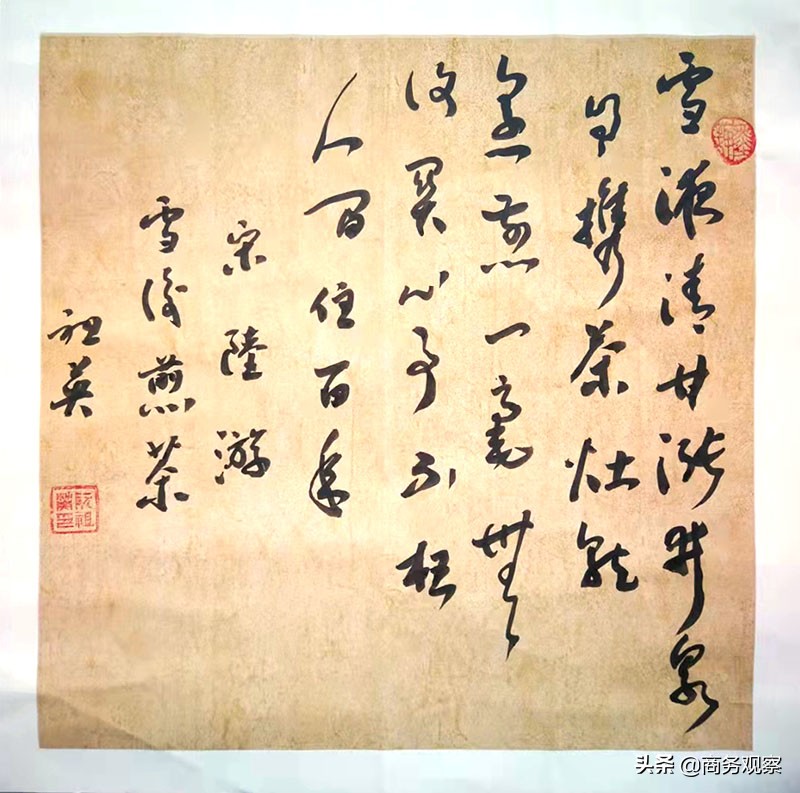 雪液清甘漲井泉
自携茶灶就
烹煎一毫無
復關心事不枉
人間住百年
宋陸游
雪後煎茶
祖英
头条 @商务观察